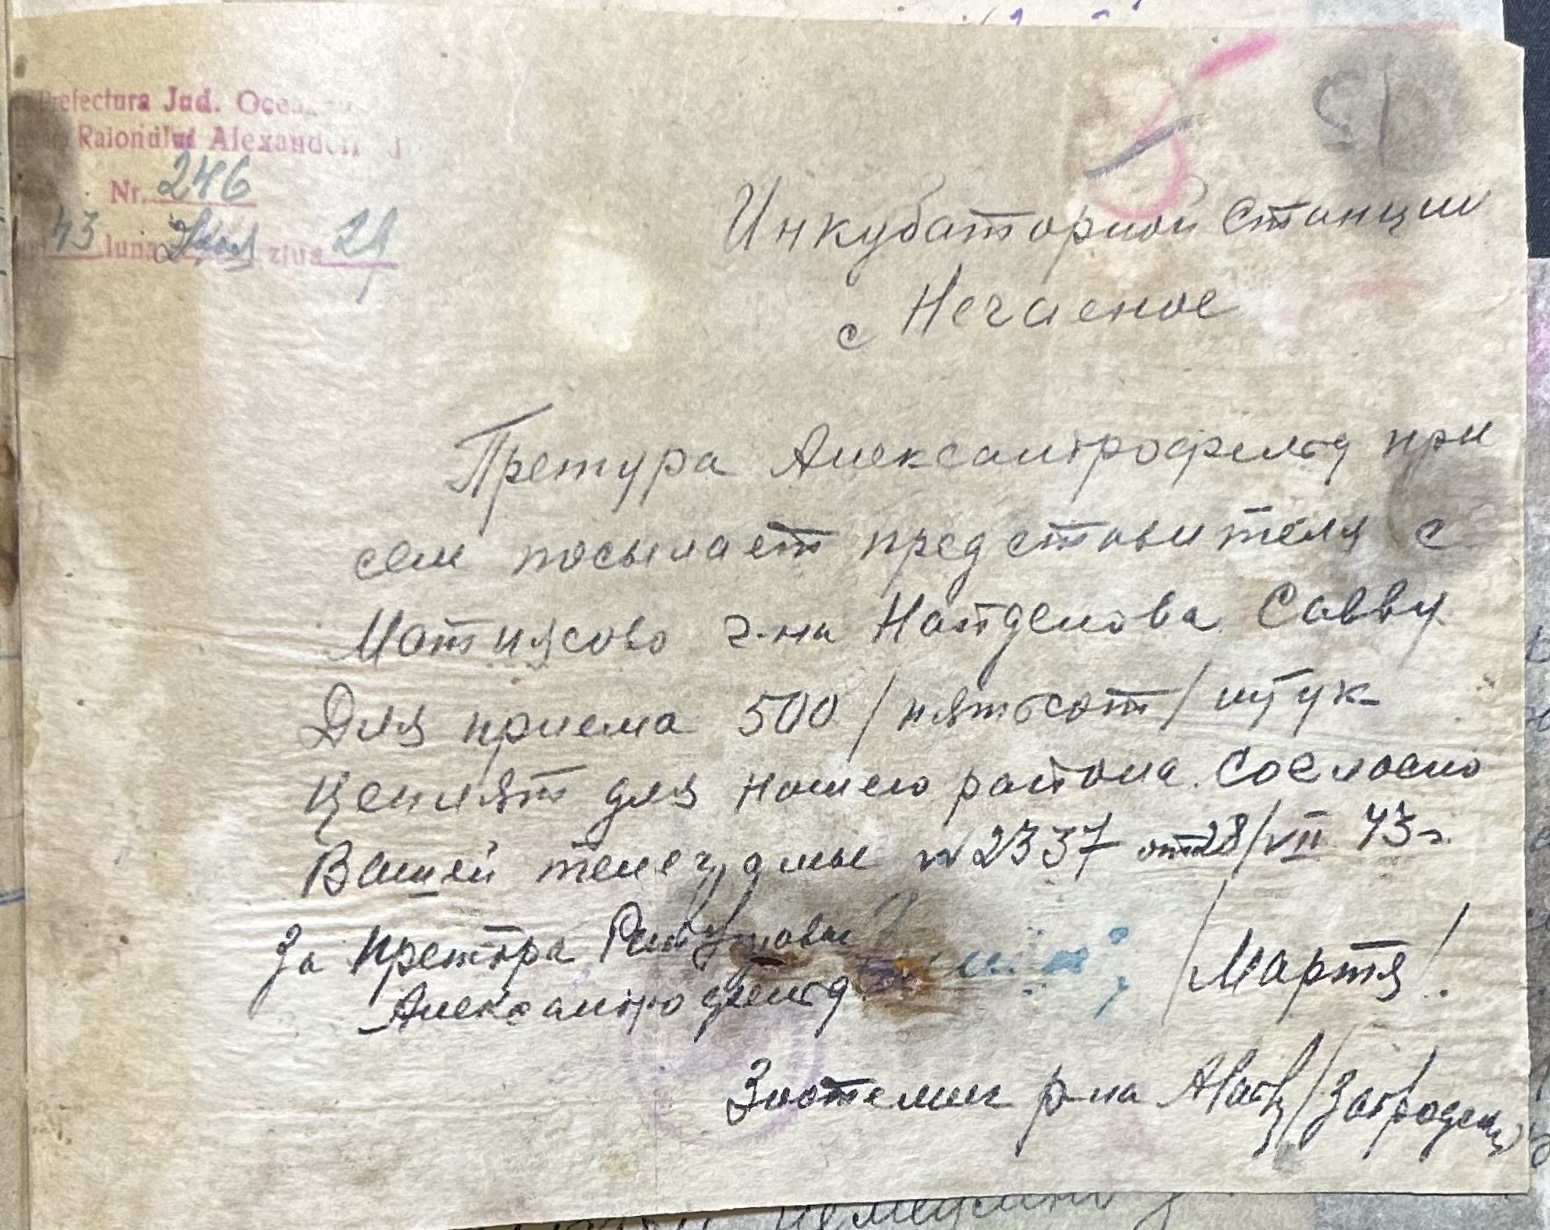 Prefectura Jud. Ocea
Raionului Alexand
Nr. 246
43 luna Iul ziua 29
Инкубаторной станции
с Нечаеное
Претура Александрофельд при
сем посылает представителя с
Матиясово г-на Найденова Савву
Для приема 500 /пятьсот/ штук
цеплят для нашего района. Согласно
Вашей телегрмы № 2337 от 28/VII 43 г.
За Претора
Александрофельд /Мартя/
Зоотехник р-на